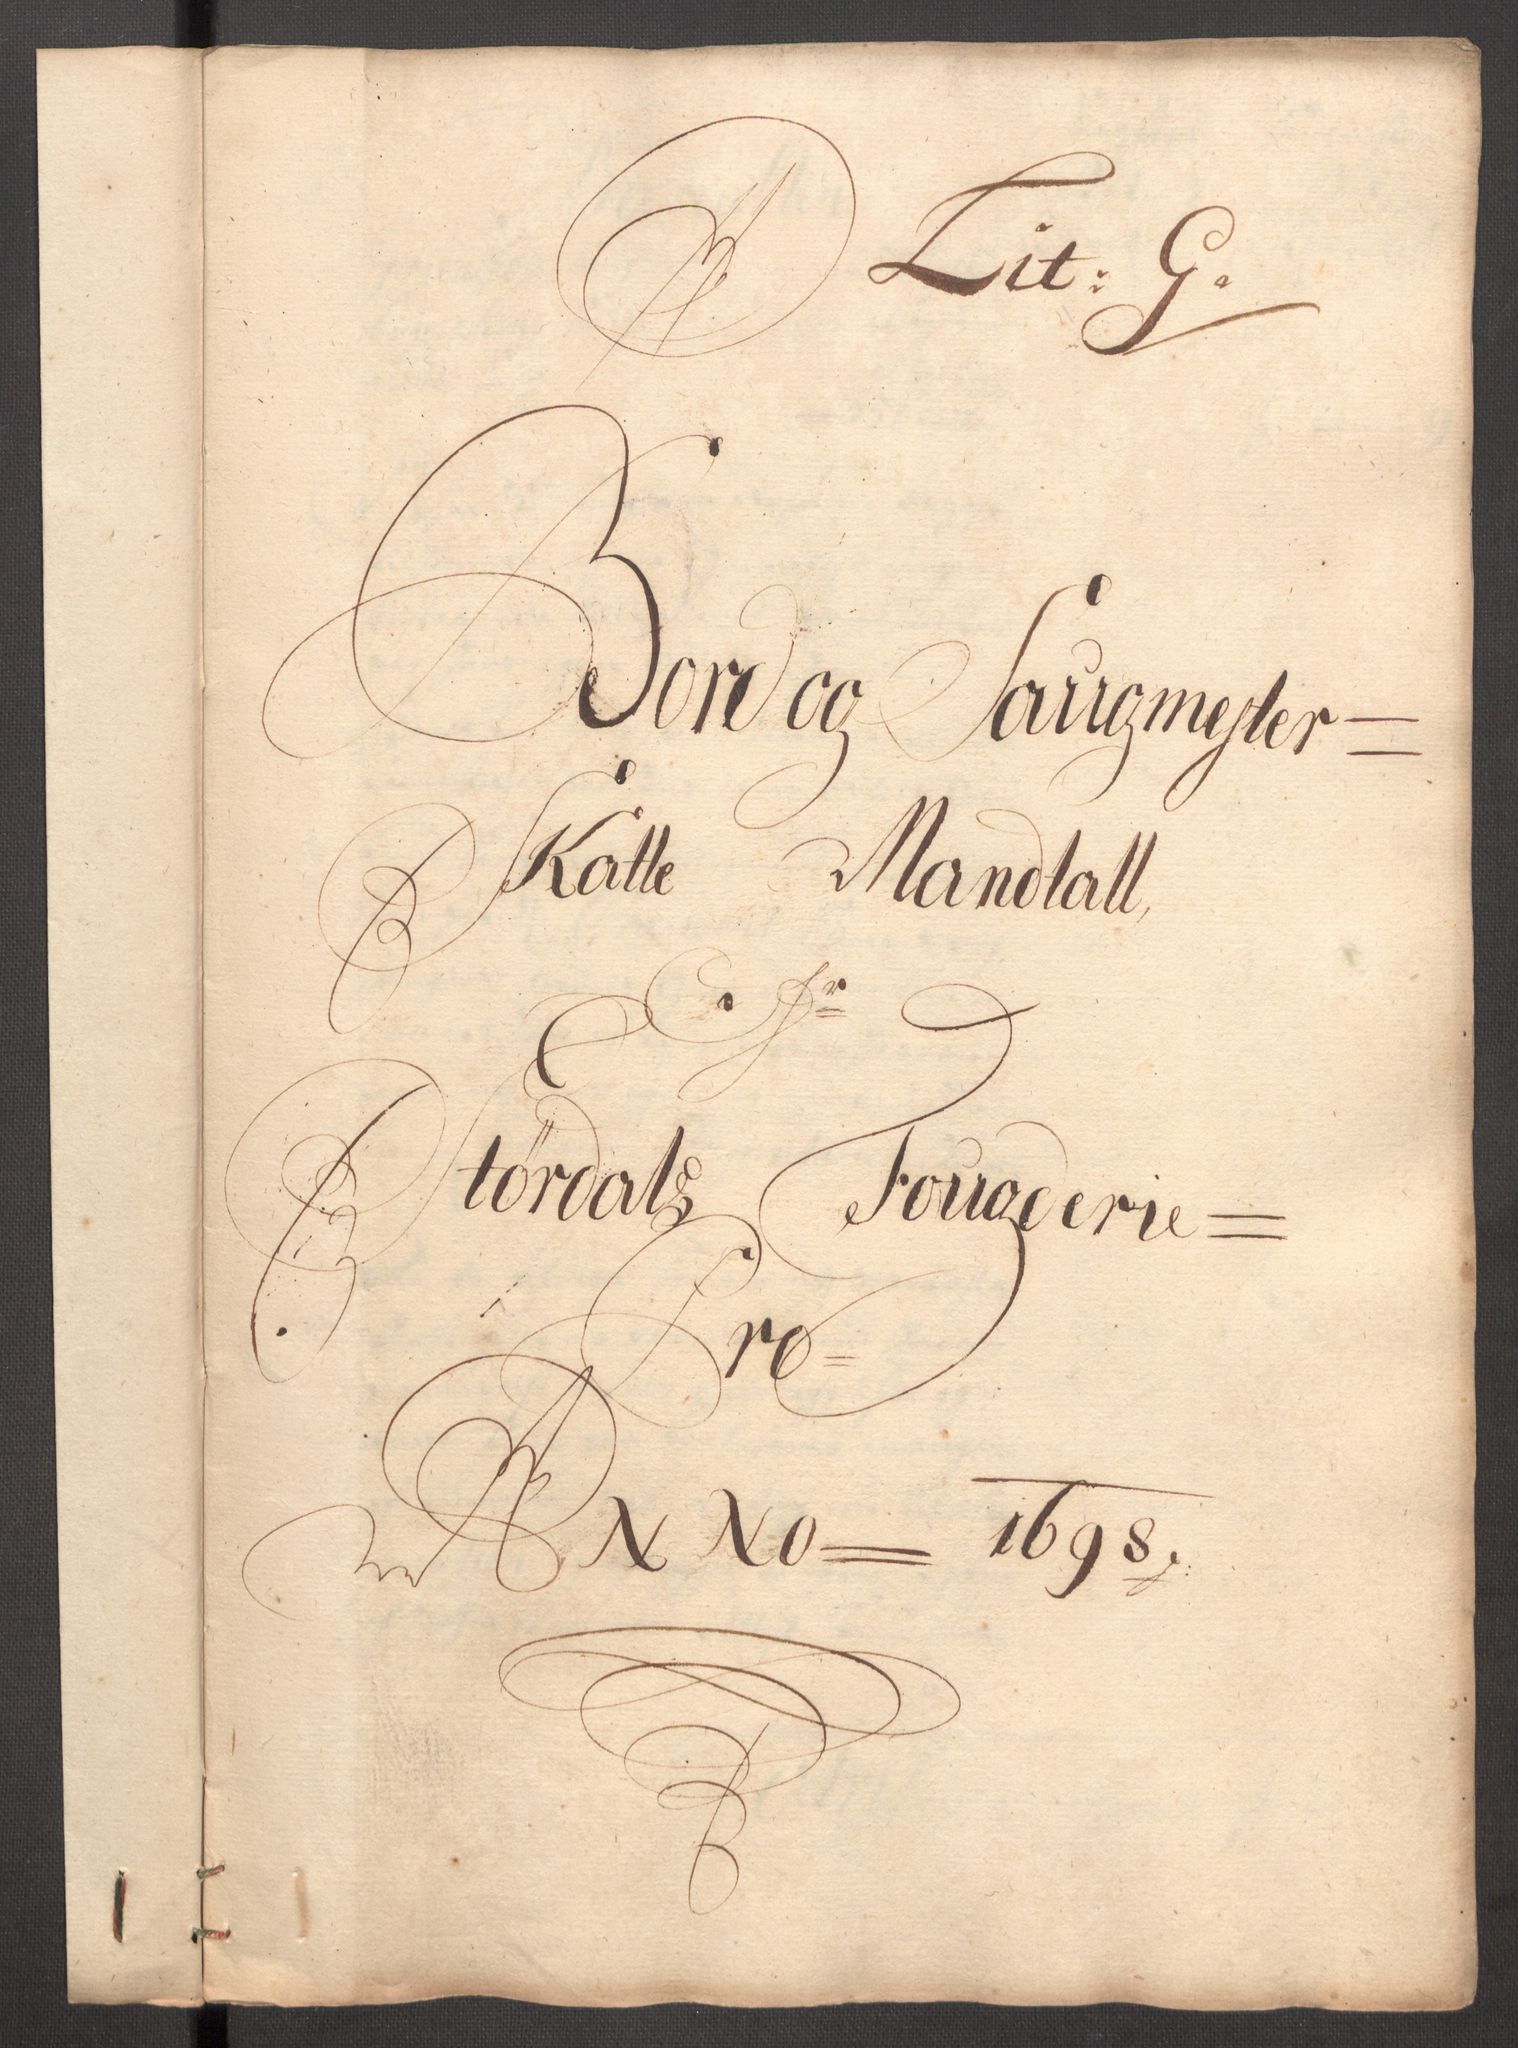 Lit: G.
Bord og Saugmester=
Skatte Mandtall,
fr
Stördals Fougderie=
Pro=
ANNO= 1698.